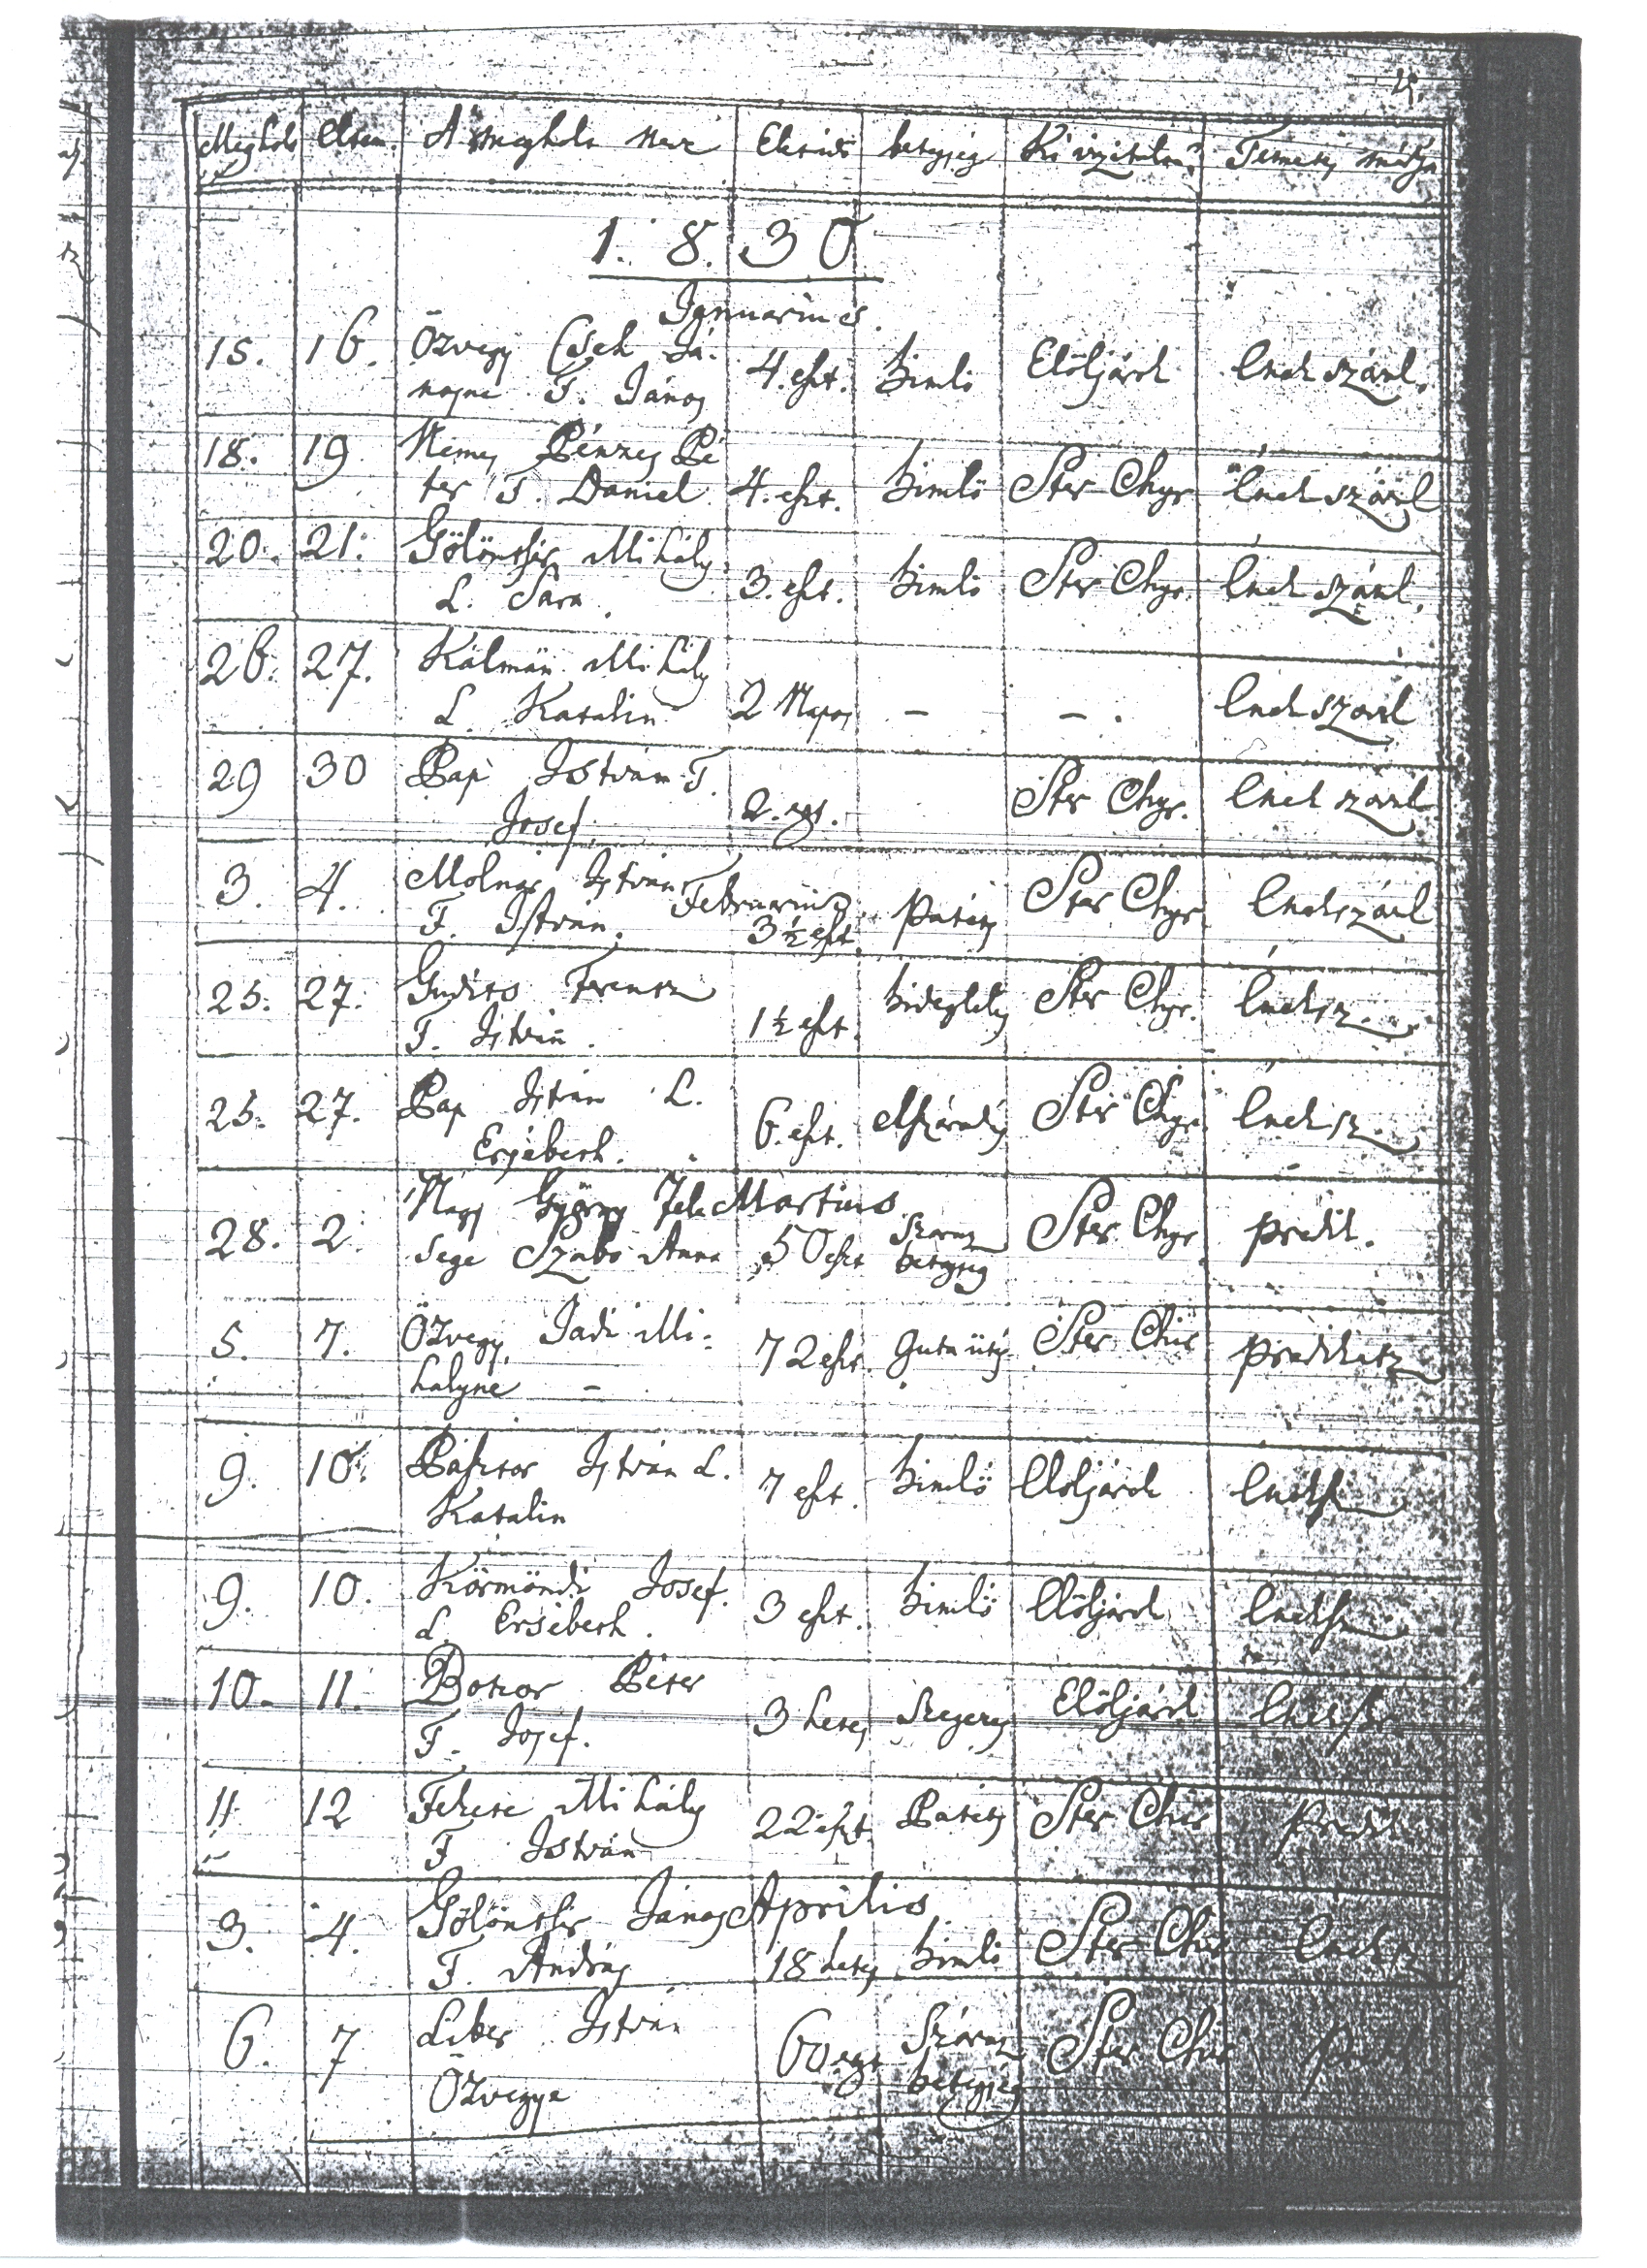 Meghols Eltem. A' meghols Neve betegség Temetés módja
1. 8. 3 0
Januarius.
15. 16. Özvegy Cseh Já-
nosne F. János 4. eszt. himlő Elöljárok Enek szóval.
18. 19 Nemes Pénzes Pé
ter F. Daniel 4. eszt. himlő Ster Chyr Ének szóval
20. 21. Mihály
L. Sara. 3. eszt. himlő Ster Chyr. Ének szóval.
26. 27. Kálmán Mihály
L. Katalin 2 Napos – – . Enek szoval
29 30 Pap István F.
Josef. 2. Ster Chyr. Enek szoval
Februarius
3. 4. Molnar István
F. István. 3 1/2 eszt. Ster Chyr. Énekszóval
25. 27. Ferentz
F. István. 1 1/2 eszt. hideglelés Ster Chyr. Éneksz.
25. 27. Pap István L.
Ersébeth. 6. eszt. Ster Chyr. Ének sz.
Martius
28. 2. Nagy György Fele
sege Szabo Anna 50 eszt Száraz betegség Ster Chyr predik.
5. 7. Özvegy Jadi Mi-
halyne – 72 eszt. Guta ütés Ster Chir predikatz
9. 10. Pásztor István L.
Katalin 7 eszt. himlő Elöljárok Eneksz
9. 10. Körmöndi Josef.
L. Ersébeth. 3 eszt. himlő Elöljárok Eneksz.
10. 11. Botzor Péter
F. Josef. 3 hetes Elöljárok Eneksz.
11. 12 Fekete Mihály
F István 22 eszt. Ster Chir Predik
Aprilis
3. 4. János
F. András 18 hetes himlő Ster Chir Enek sz
6. 7 István
Özvegye 60 Száraz betegség Ster Chir Predik